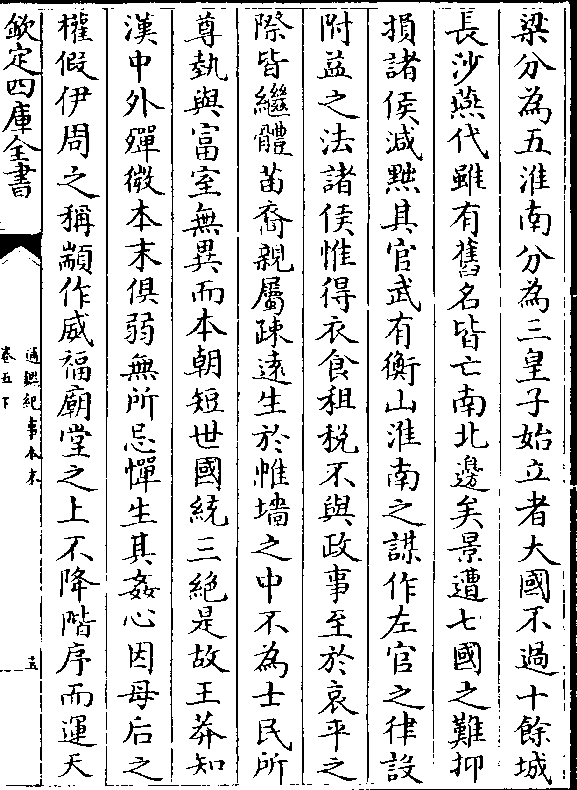 梁分為五淮南分為三皇子始立者大國不過十餘城
長沙燕代雖有舊名皆亡南北邊矣景遭七國之難抑
損諸侯減黜其官武有衡山淮南之謀作左官之律設
附益之法諸侯惟得衣食租税不與政事至於哀平之
際皆繼體苗裔親屬疎逺生於帷墻之中不為士民所
尊埶與富室無異而本朝短世國統三絶是故王莽知
漢中外殫微本末俱弱無所忌憚生其姦心因母后之
權假伊周之稱顓作威福廟堂之上不降階序而運天
欽定四庫全書
通鑑紀事本末
卷五下
五